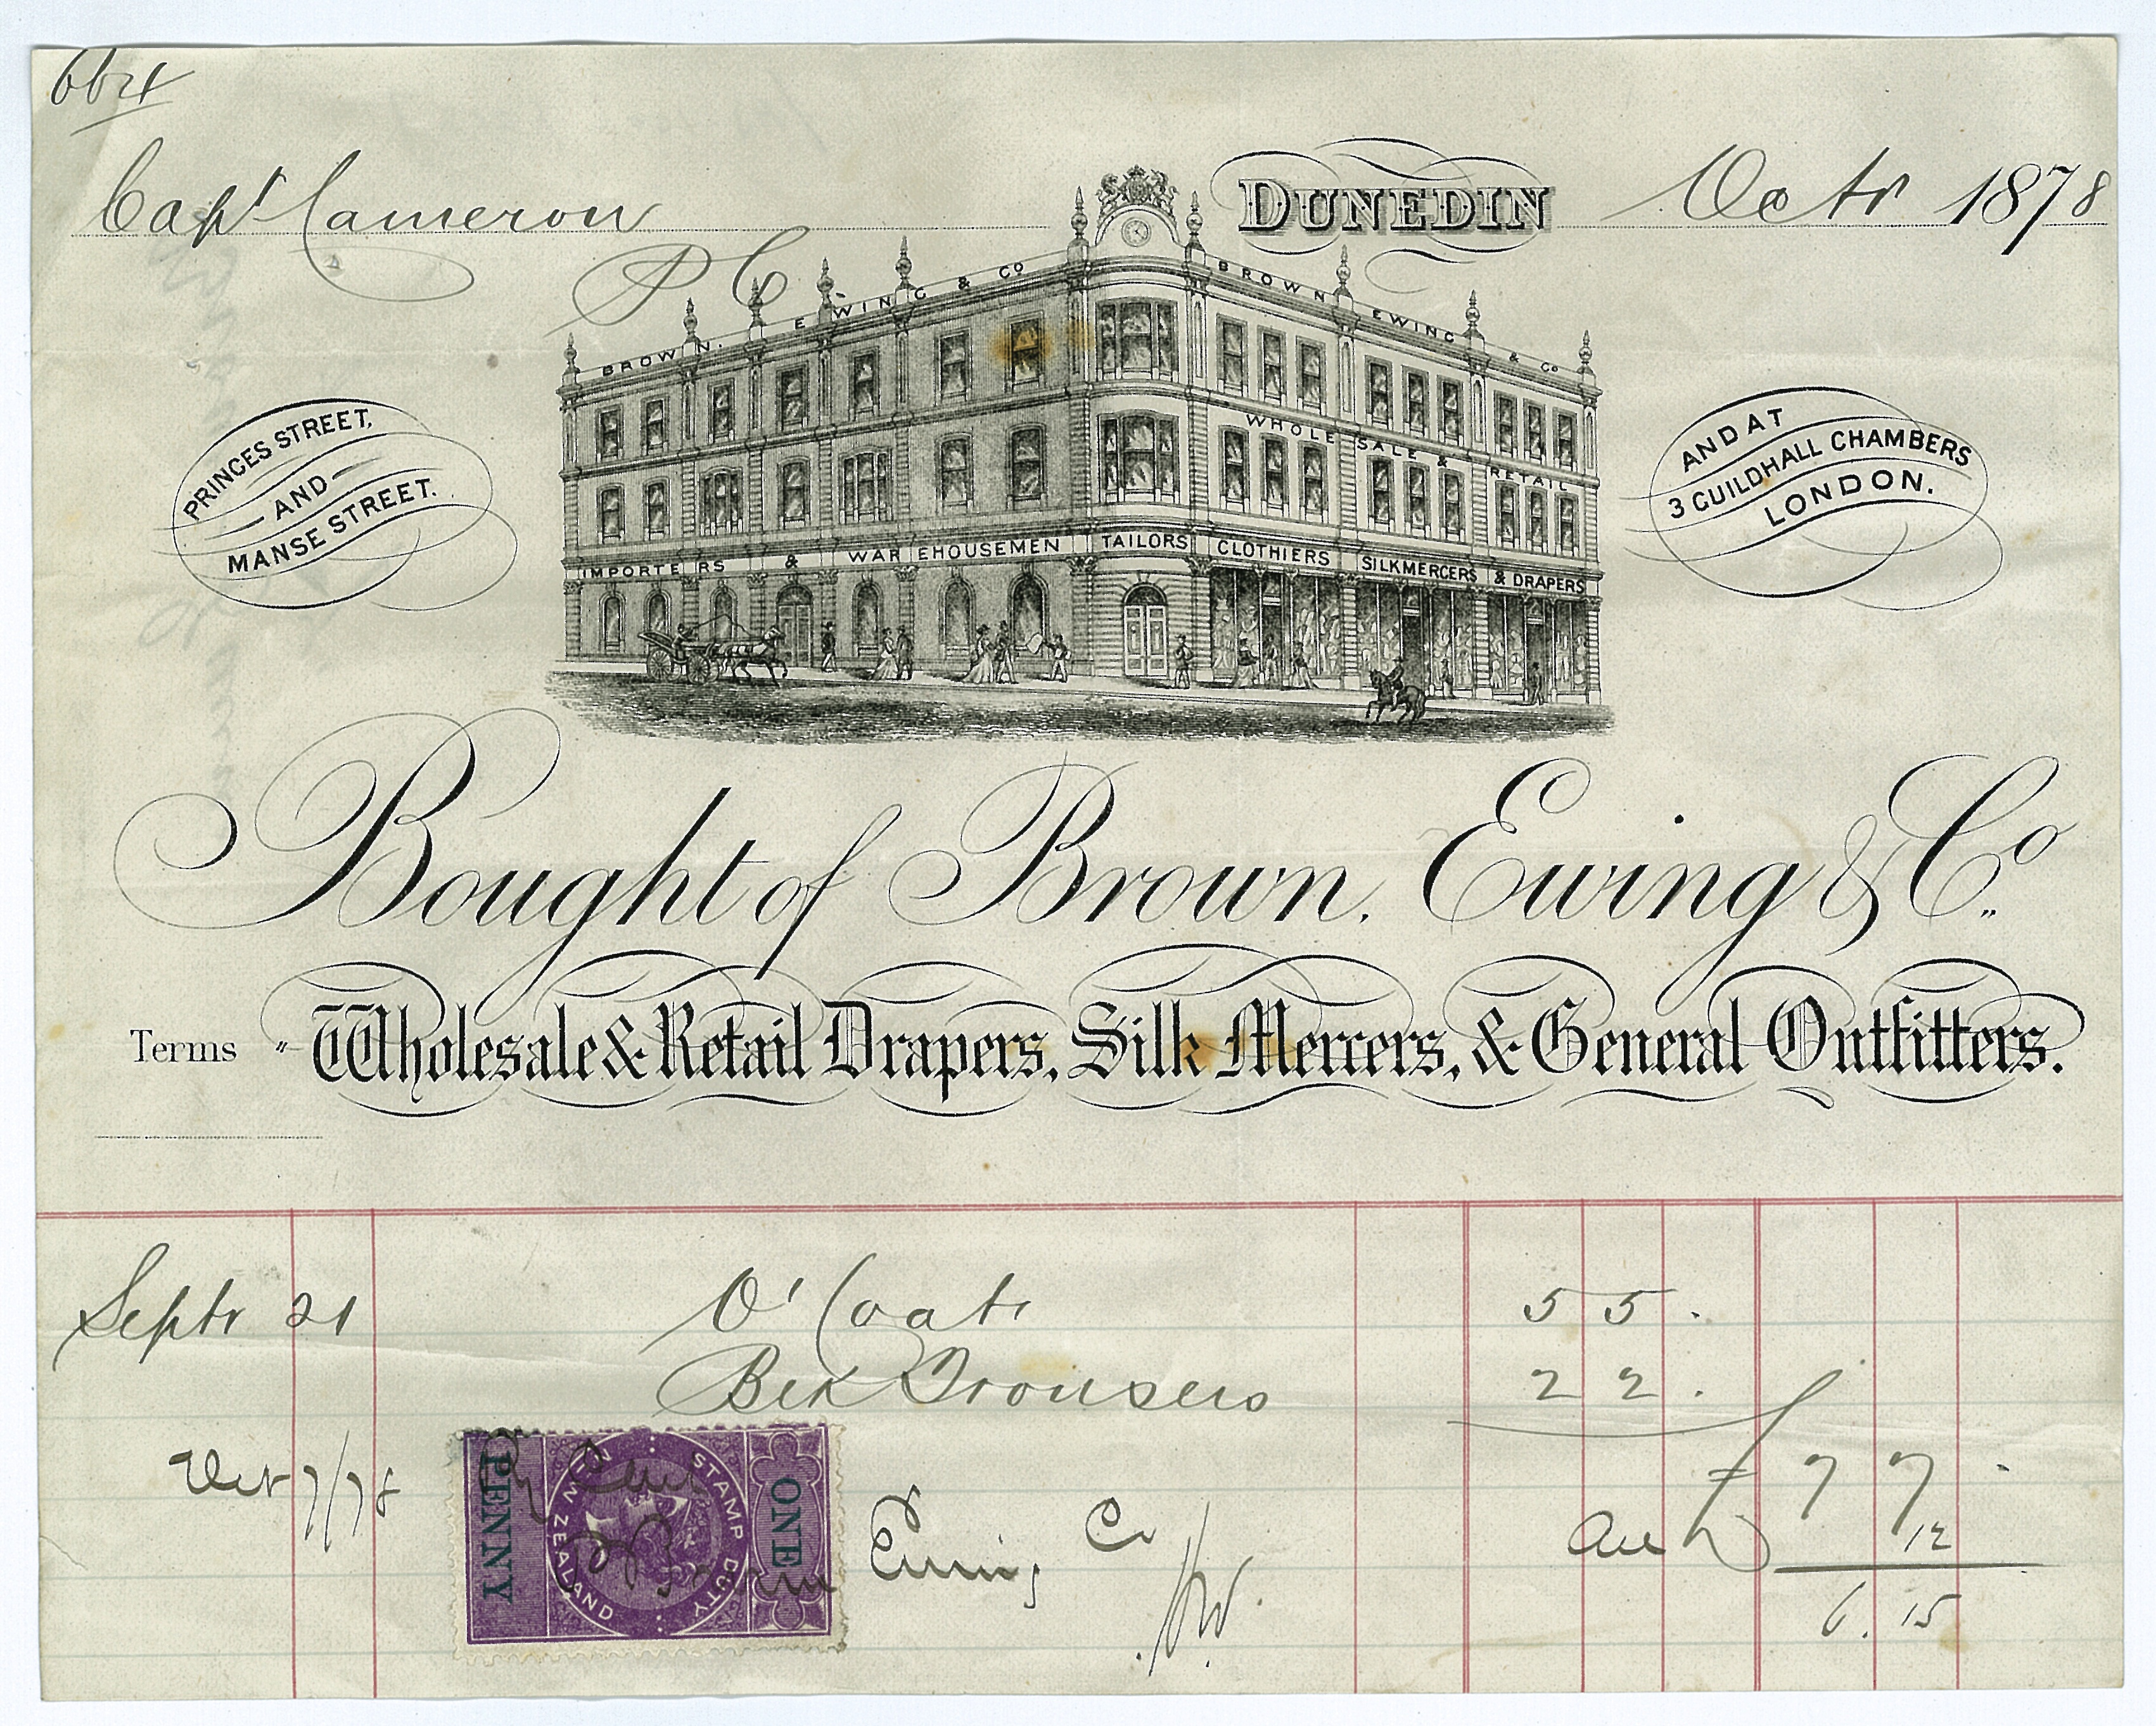 6624
Capt Cameron
DUNEDIN Octr 1878
P C
BROWN, EWING & Co
BROWN EWING & Co
WHOLESALE & RETAIL
PRINCES STREET,
AND
MANSE STREET.
AND AT
3 GUILDHALL CHAMBERS
LONDON.
IMPORTERS & WAREHOUSEMEN TAILORS CLOTHIERS SILKMERCERS & DRAPERS
Bought of Brown, Ewing & Co.
Terms Wholesale & Retail Drapers, Silk Mercers, & General Outfitters.
Septr 21 O'Coat 55 .
Trousers 22 .
£ 7 7 .
Oct 7/78
NEW ZEALAND STAMP DUTY
ONE PENNY
Brown Ewing Co
12
6. 15